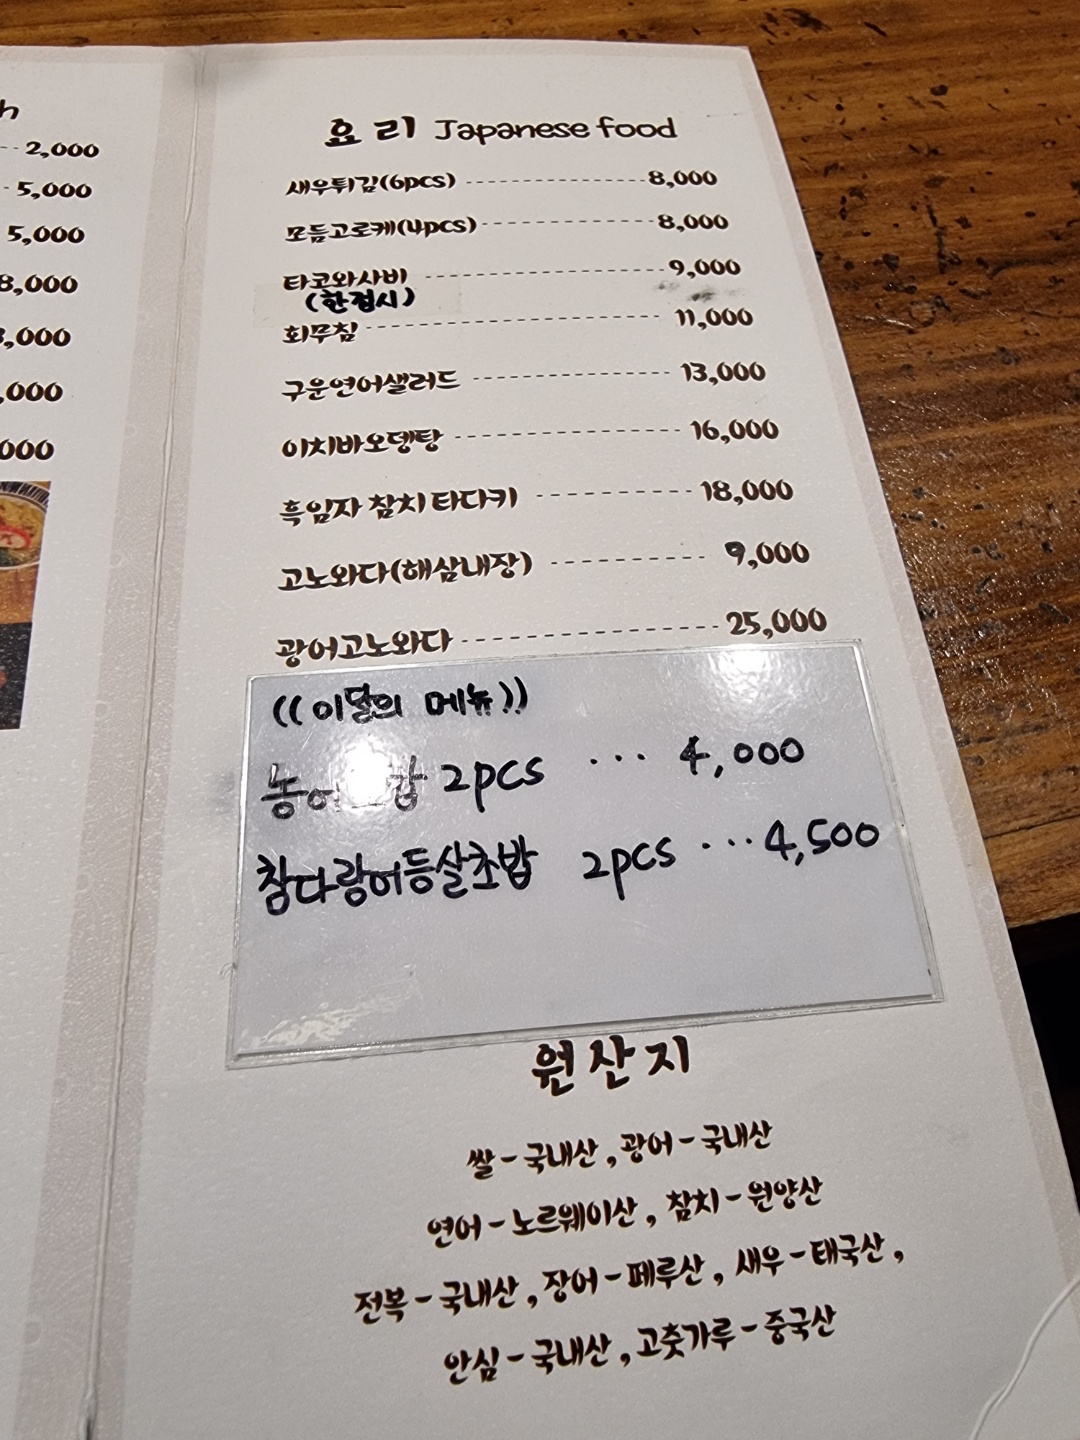 2,000
5,000
5,000
8,000
,000
,000
000
요리 Japanese food
새우튀김(6pcs) 8,000
모듬고로케(4pcs) 8,000
타코와사비 9,000
(한접시)
회무침 11,000
구운연어샐러드 13,000
이치바오뎅탕 16,000
흑임자 참치 타다키 18,000
고노와다(해삼내장) 9,000
광어고노와다 25,000
((이달의 메뉴))
2pcs ... 4,000
참다랑어등살초밥 2pcs ... 4,500
원산지
쌀-국내산, 광어-국내산
연어-노르웨이산, 참치-원양산
전복-국내산, 장어-페루산, 새우-태국산,
안심-국내산, 고춧가루-중국산